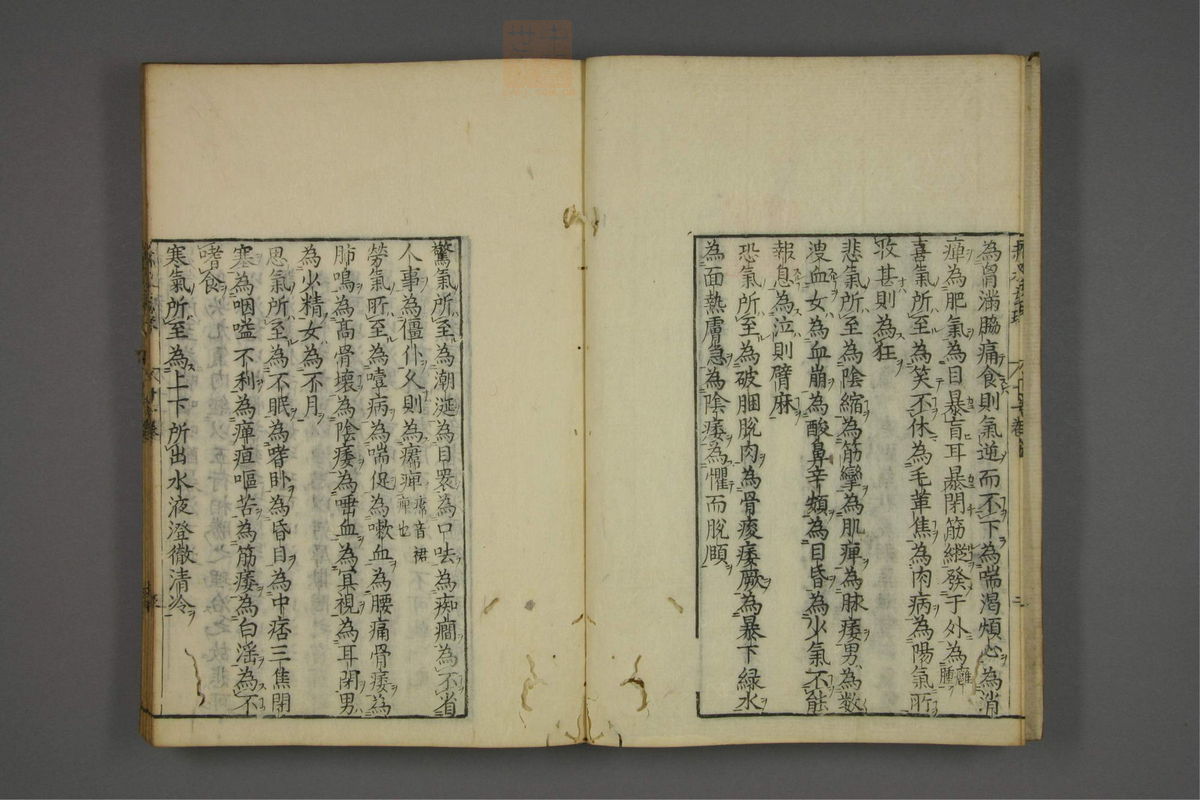 為胷滿脇痛食則氣逆而不下為喘渴煩心為消
癉為肥氣為目暴盲耳暴閉筋緃發于外為癰腫
喜氣所至為笑不休為毛革焦為肉病為陽氣所不
收甚則為狂
悲氣所至為陰縮為筋攣為肌痺為脉痿男為数
溲血女為血崩為酸鼻辛頞為目昏為少氣不能
報息為泣則臂麻
恐氣所至為破䐃脫肉為骨痠痿厥為暴下緑水
為面熱膚急為陰痿為懼而脫頥
驚氣所至為潮涎為目睘為口呿為痴癎為不省
人事為僵仆久則為𤺊痺𤺊音裙痺也
勞氣所至為噎病為喘促為嗽血為腰痛骨痿為
肺鳴為髙骨壞為陰痿為唾血為冥視為耳閉男
為少精女為不月
思氣所至為不眠為嗜卧為昏目為中痞三焦閉
塞為咽嗌不利為癉疸嘔苦為筋痿為白淫為不
嗜食
寒氣所至為上下所出水液澄徹清冷